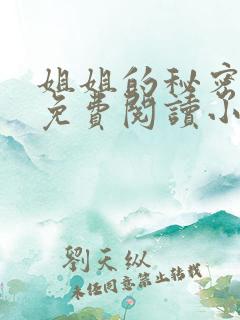 姐姐的秘密
免費閱讀小
劉天纵
未经同意禁止转载